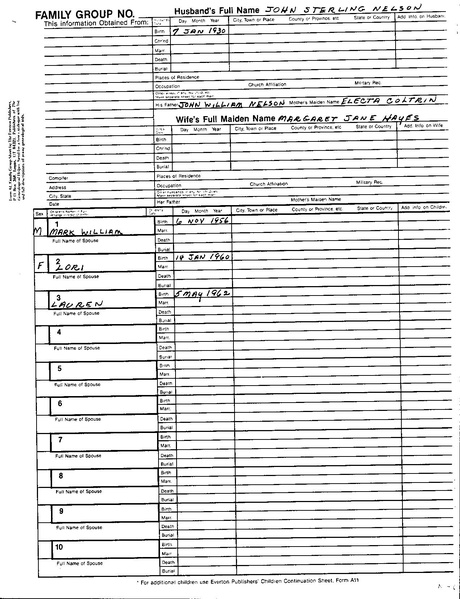 FAMILY GROUP NO. Husband's Full Name JOHN STERLING NELSON
This Information Obtained From: Day Month Year City, Town or Place County or Province, etc. State or Country Add. Info on Husband
Birth 7 JAN 1930
Chrnd
Marr.
Death
Burial
Places of Residence
Occupation Church Affiliation Military Rec.
His Father JOHN WILLIAM NELSON Mother's Maiden Name ELECTA COLTRIN
Wife's Full Maiden Name MARGARET JANE HAYES
Day Month Year City, Town or Place County or Province, etc. State or Country Add. Info on Wife
Birth
Chrnd
Death
Burial
Compiler Places of Residence
Address Occupation Church Affiliation Military Rec.
City, State
Date Her Father Mother's Maiden Name
Sex Day Month Year City, Town or Place County or Province, etc. State or Country Add. Info on Children
1 Birth 6 NOV 1956
M MARK WILLIAM Marr.
Full Name of Spouse Death
Burial
2 Birth 14 JAN 1960
F LORI Marr.
Full Name of Spouse Death
Burial
3 Birth 5 MAY 1962
LAUREN Marr.
Full Name of Spouse Death
Burial
4 Birth
Marr.
Full Name of Spouse Death
Burial
5 Birth
Marr.
Full Name of Spouse Death
Burial
6 Birth
Marr.
Full Name of Spouse Death
Burial
7 Birth
Marr.
Full Name of Spouse Death
Burial
8 Birth
Marr.
Full Name of Spouse Death
Burial
9 Birth
Marr.
Full Name of Spouse Death
Burial
10 Birth
Marr.
Full Name of Spouse Death
Burial
* For additional children use Everton Publishers' Children Continuation Sheet, Form A11